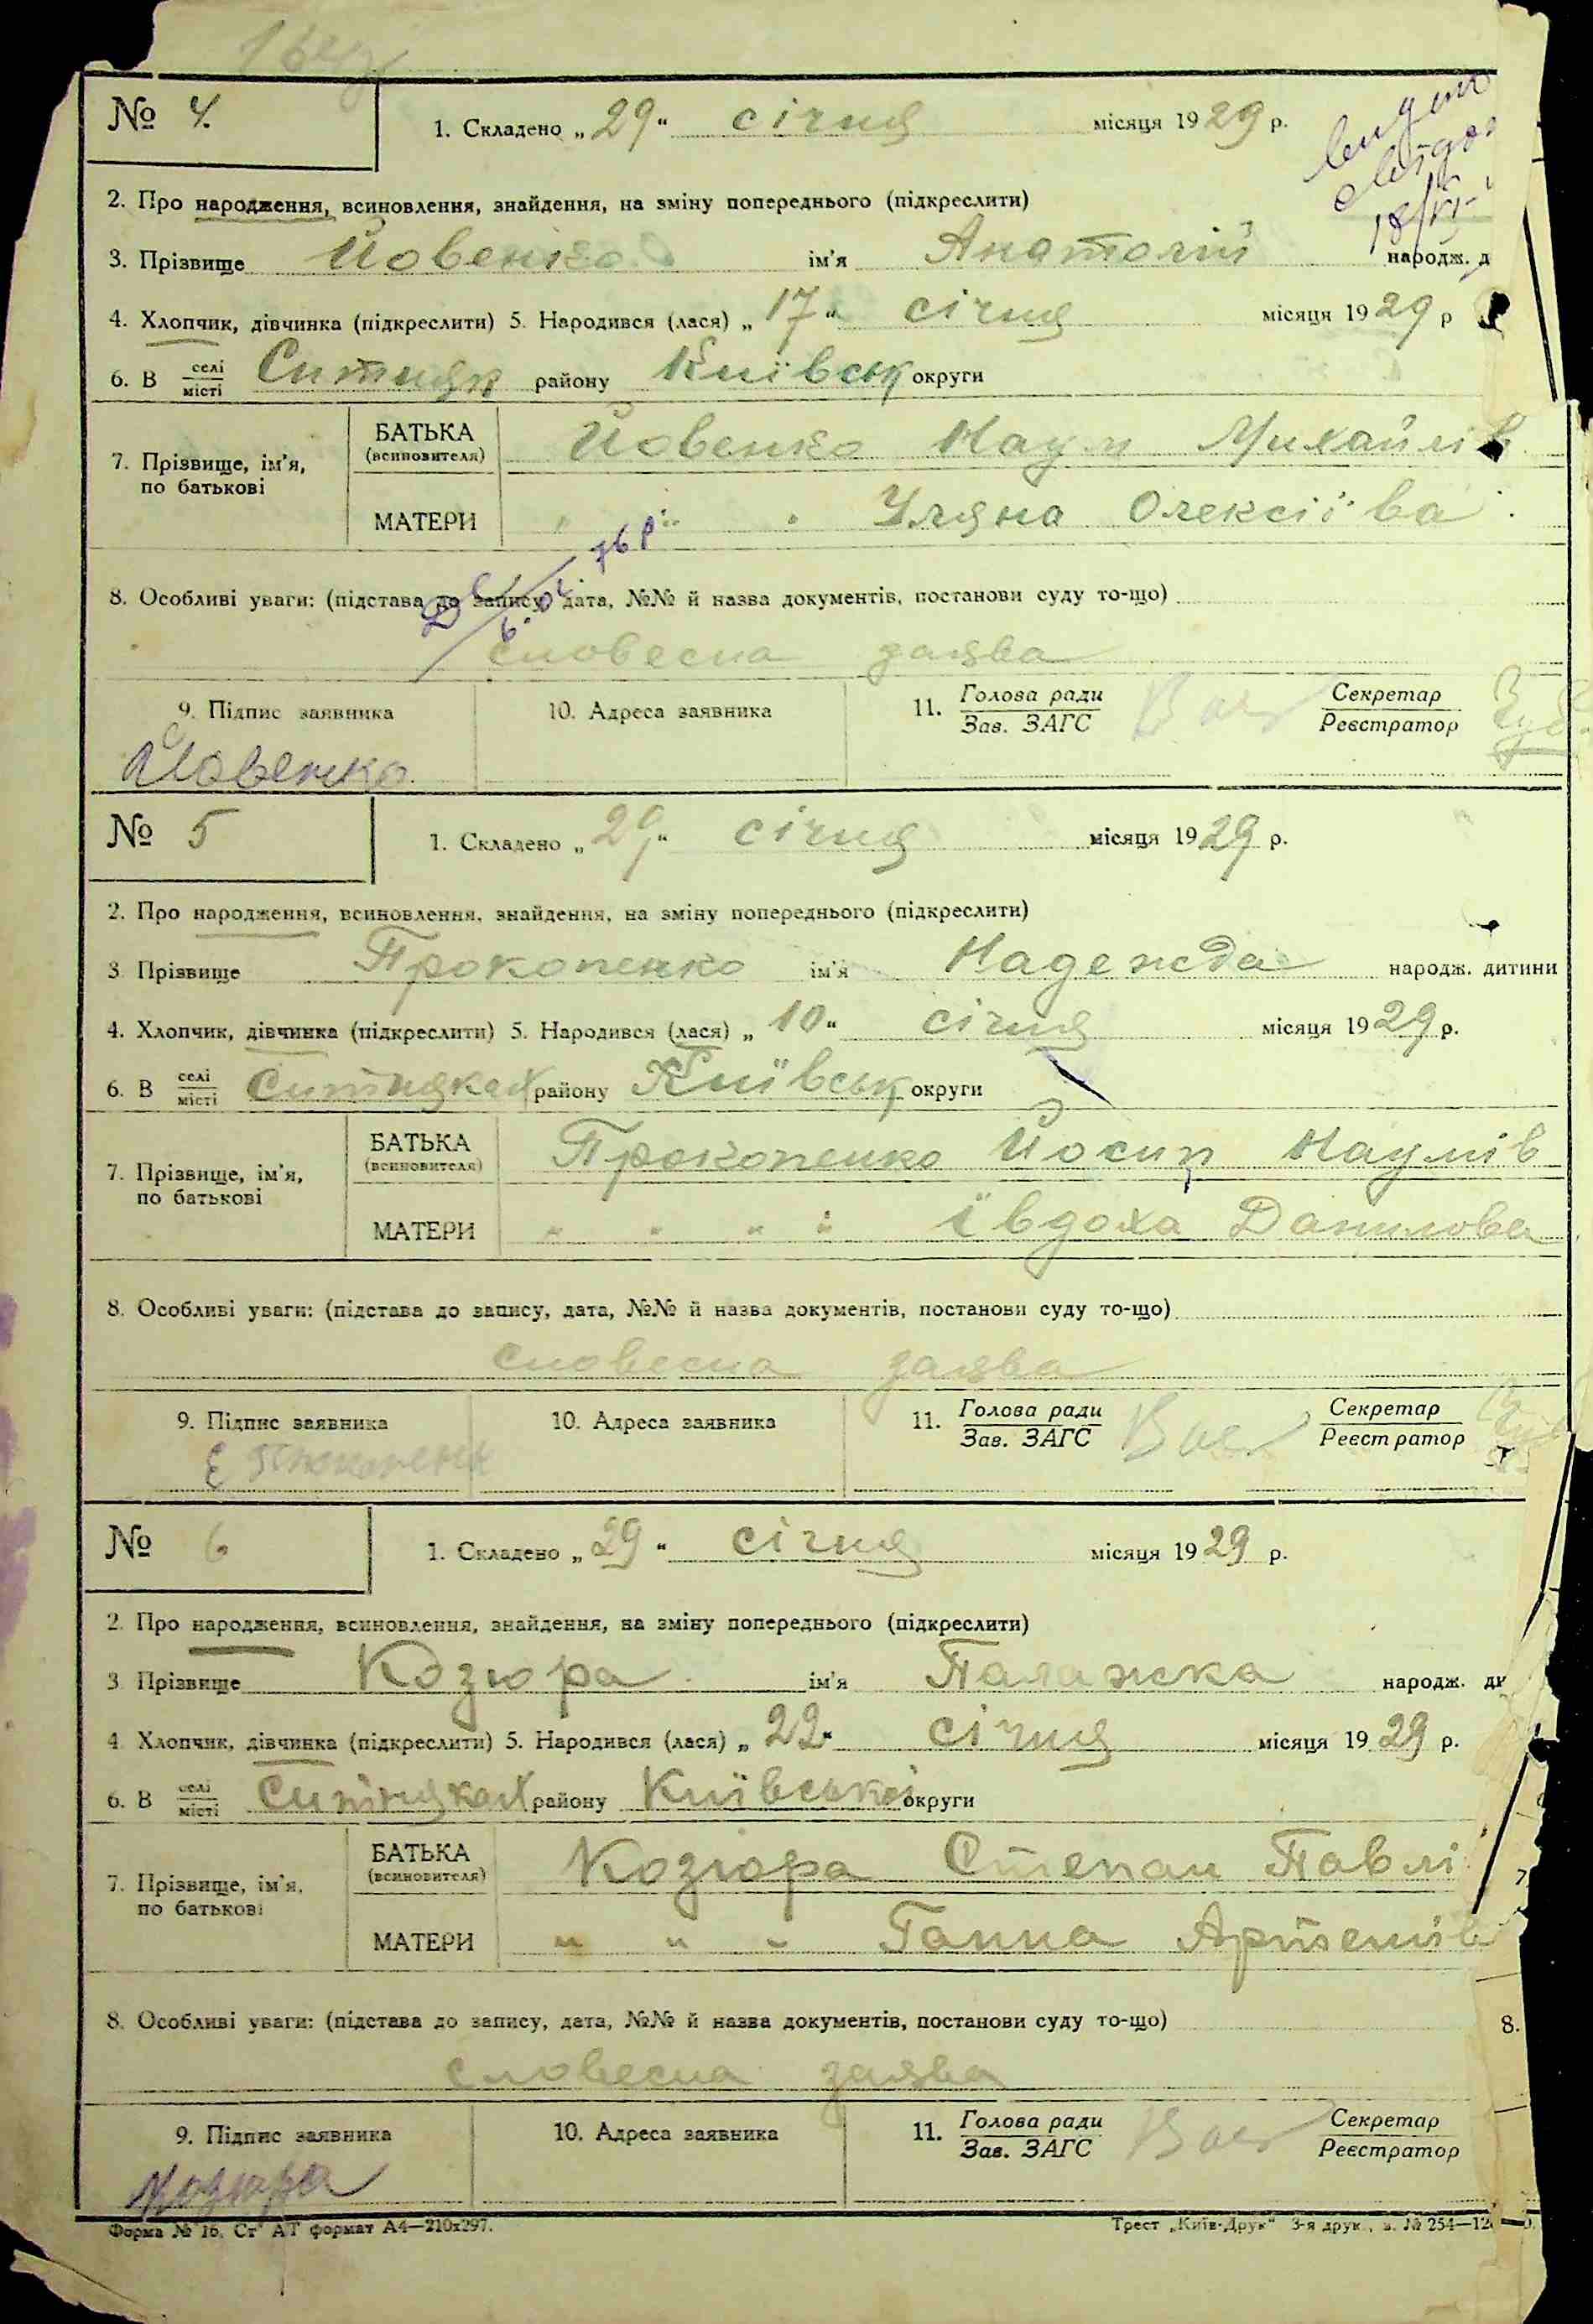 № 4.
1. Складено „29“ січня місяця 1929 р.
2. Про народження, всиновлення, знайдення, на зміну попереднього (підкреслити)
3. Прізвище Йовенко ім'я Анатолій народж. д
4. Хлопчик, дівчинка (підкреслити) 5. Народився (лася) „17“ січня місяця 1929 р
6. В селі місті Ситняк району Київськ округи
7. Прізвище, ім'я, по батькові
БАТЬКА (всиновителя) Йовенко Наум Михайлів
МАТЕРИ " " " Уляна Олексіїва
76 р
8. Особливі уваги: (підстава до запису, дата, №№ й назва документів, постанови суду то-що)
словесна заява
9. Підпис заявника 10. Адреса заявника 11. Голова ради Зав. ЗАГС Секретар Реєстратор
Йовенко
№ 5
1. Складено „29“ січня місяця 1929 р.
2. Про народження, всиновлення, знайдення, на зміну попереднього (підкреслити)
3 Прізвище Прокопенко ім'я Надежда народж. дитини
4. Хлопчик, дівчинка (підкреслити) 5. Народився (лася) „10“ січня місяця 1929 р.
6. В селі місті Ситняках району Київськ округи
7. Прізвище, ім'я, по батькові
БАТЬКА (всиновителя) Прокопенко Йосип Наумів
МАТЕРИ " " " " Івдоха Данилова
8. Особливі уваги: (підстава до запису, дата, №№ й назва документів, постанови суду то-що)
словесна заява
9. Підпис заявника 10. Адреса заявника 11. Голова ради Зав. ЗАГС Секретар Реєстратор
№ 6
1. Складено „29“ січня місяця 1929 р.
2. Про народження, всиновлення, знайдення, на зміну попереднього (підкреслити)
3 Прізвище Козюра ім'я Палажка народж. ди
4 Хлопчик, дівчинка (підкреслити) 5. Народився (лася) „22“ січня місяця 1929 р.
6. В селі місті Ситняках району Київської округи
7. Прізвище, ім'я, по батькові
БАТЬКА (всиновителя) Козюра Степан Павлі
МАТЕРИ " " " Ганна Артемів
8. Особливі уваги: (підстава до запису, дата, №№ й назва документів, постанови суду то-що) 8.
словесна заява
9. Підпис заявника 10. Адреса заявника 11. Голова ради Зав. ЗАГС Секретар Реєстратор
Козюра
Форма № 16. Ст АТ формат А4—210х297. Трест „Київ-Друк“ 3-я друк., з. № 254—12